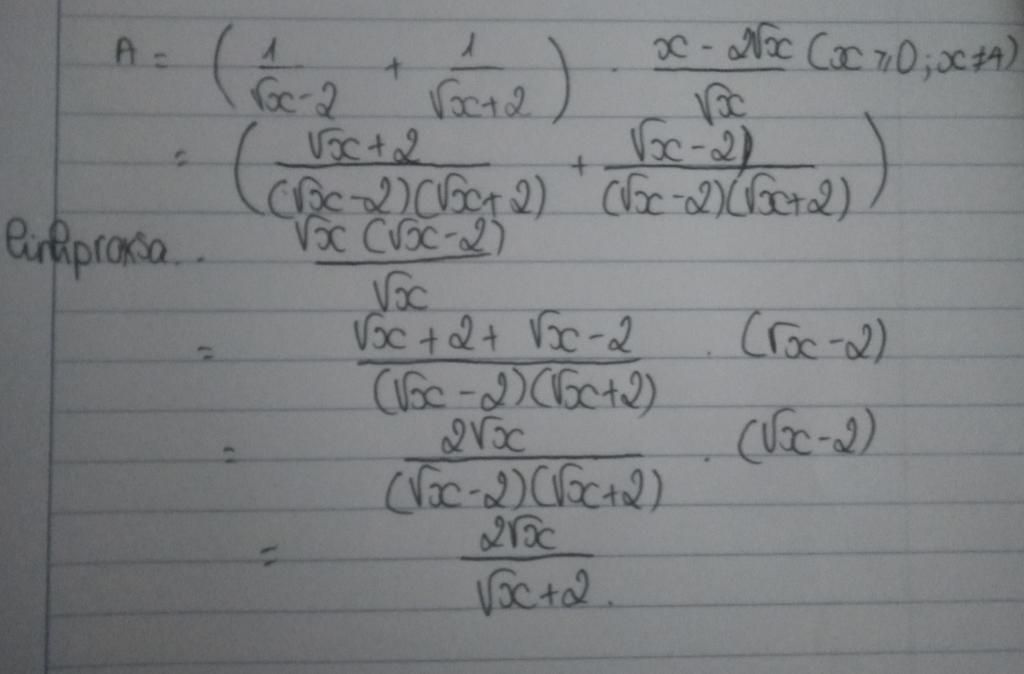 A = (1/(√x-2) + 1/(√x+2)) . (x - 2√x)/√x (x ⩾ 0; x ≠ 4)
= ((√x+2)/((√x-2)(√x+2)) + (√x-2))/((√x-2)(√x+2)))
. (√x (√x-2))/√x
= (√x + 2 + √x - 2)/((√x-2)(√x+2)) . (√x-2)
= 2√x/((√x-2)(√x+2)) . (√x-2)
= 2√x/(√x+2).